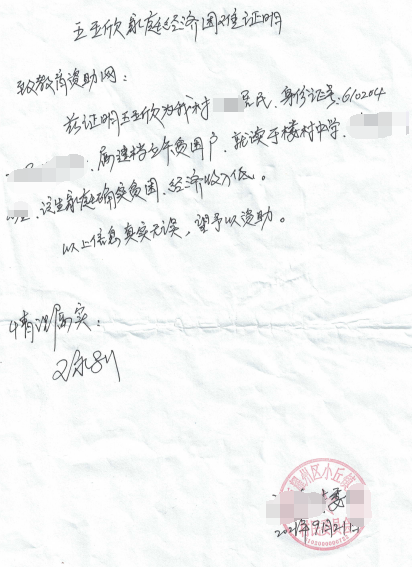 王亚欣家庭经济困难证明
致教育资助网：
兹证明王亚欣为我村 居民，身份证号：610204
，属建档立卡贫困户，就读于楼村中学，
该生家庭确实贫困，经济收入低。
以上信息真实无误，望予以资助。
情况属实：
耀州区小丘镇
委
2021年9月21日